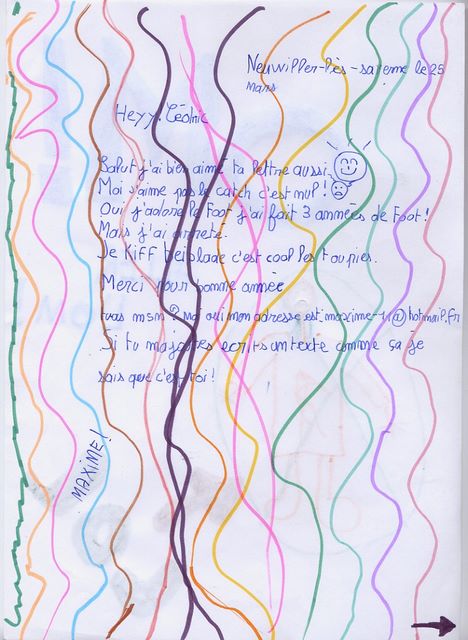 Neuwiller-lès-saverne le 25
mars
Heyy. Cédric
Salut j'ai bien aimé ta lettre aussi
Moi s'aime pas le catch c'est nul!
Oui j'adore le foot j'ai fait 3 années de foot!
Mais j'ai arreté.
Je Kiff beiblade c'est cool les toupies.
Merci pour bonne année
tuas msn? Ma oui mon adresse est: maxime-@hotmail.fr
Si tu ma ecrits un texte comme ça je
sais que c'est toi!
MAXIME!